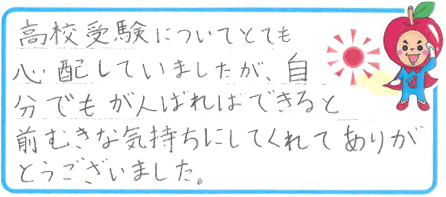 高校受験についてとても
心配していましたが、自
分でもがんばればできると
前むきな気持ちにしてくれてありが
とうございました。